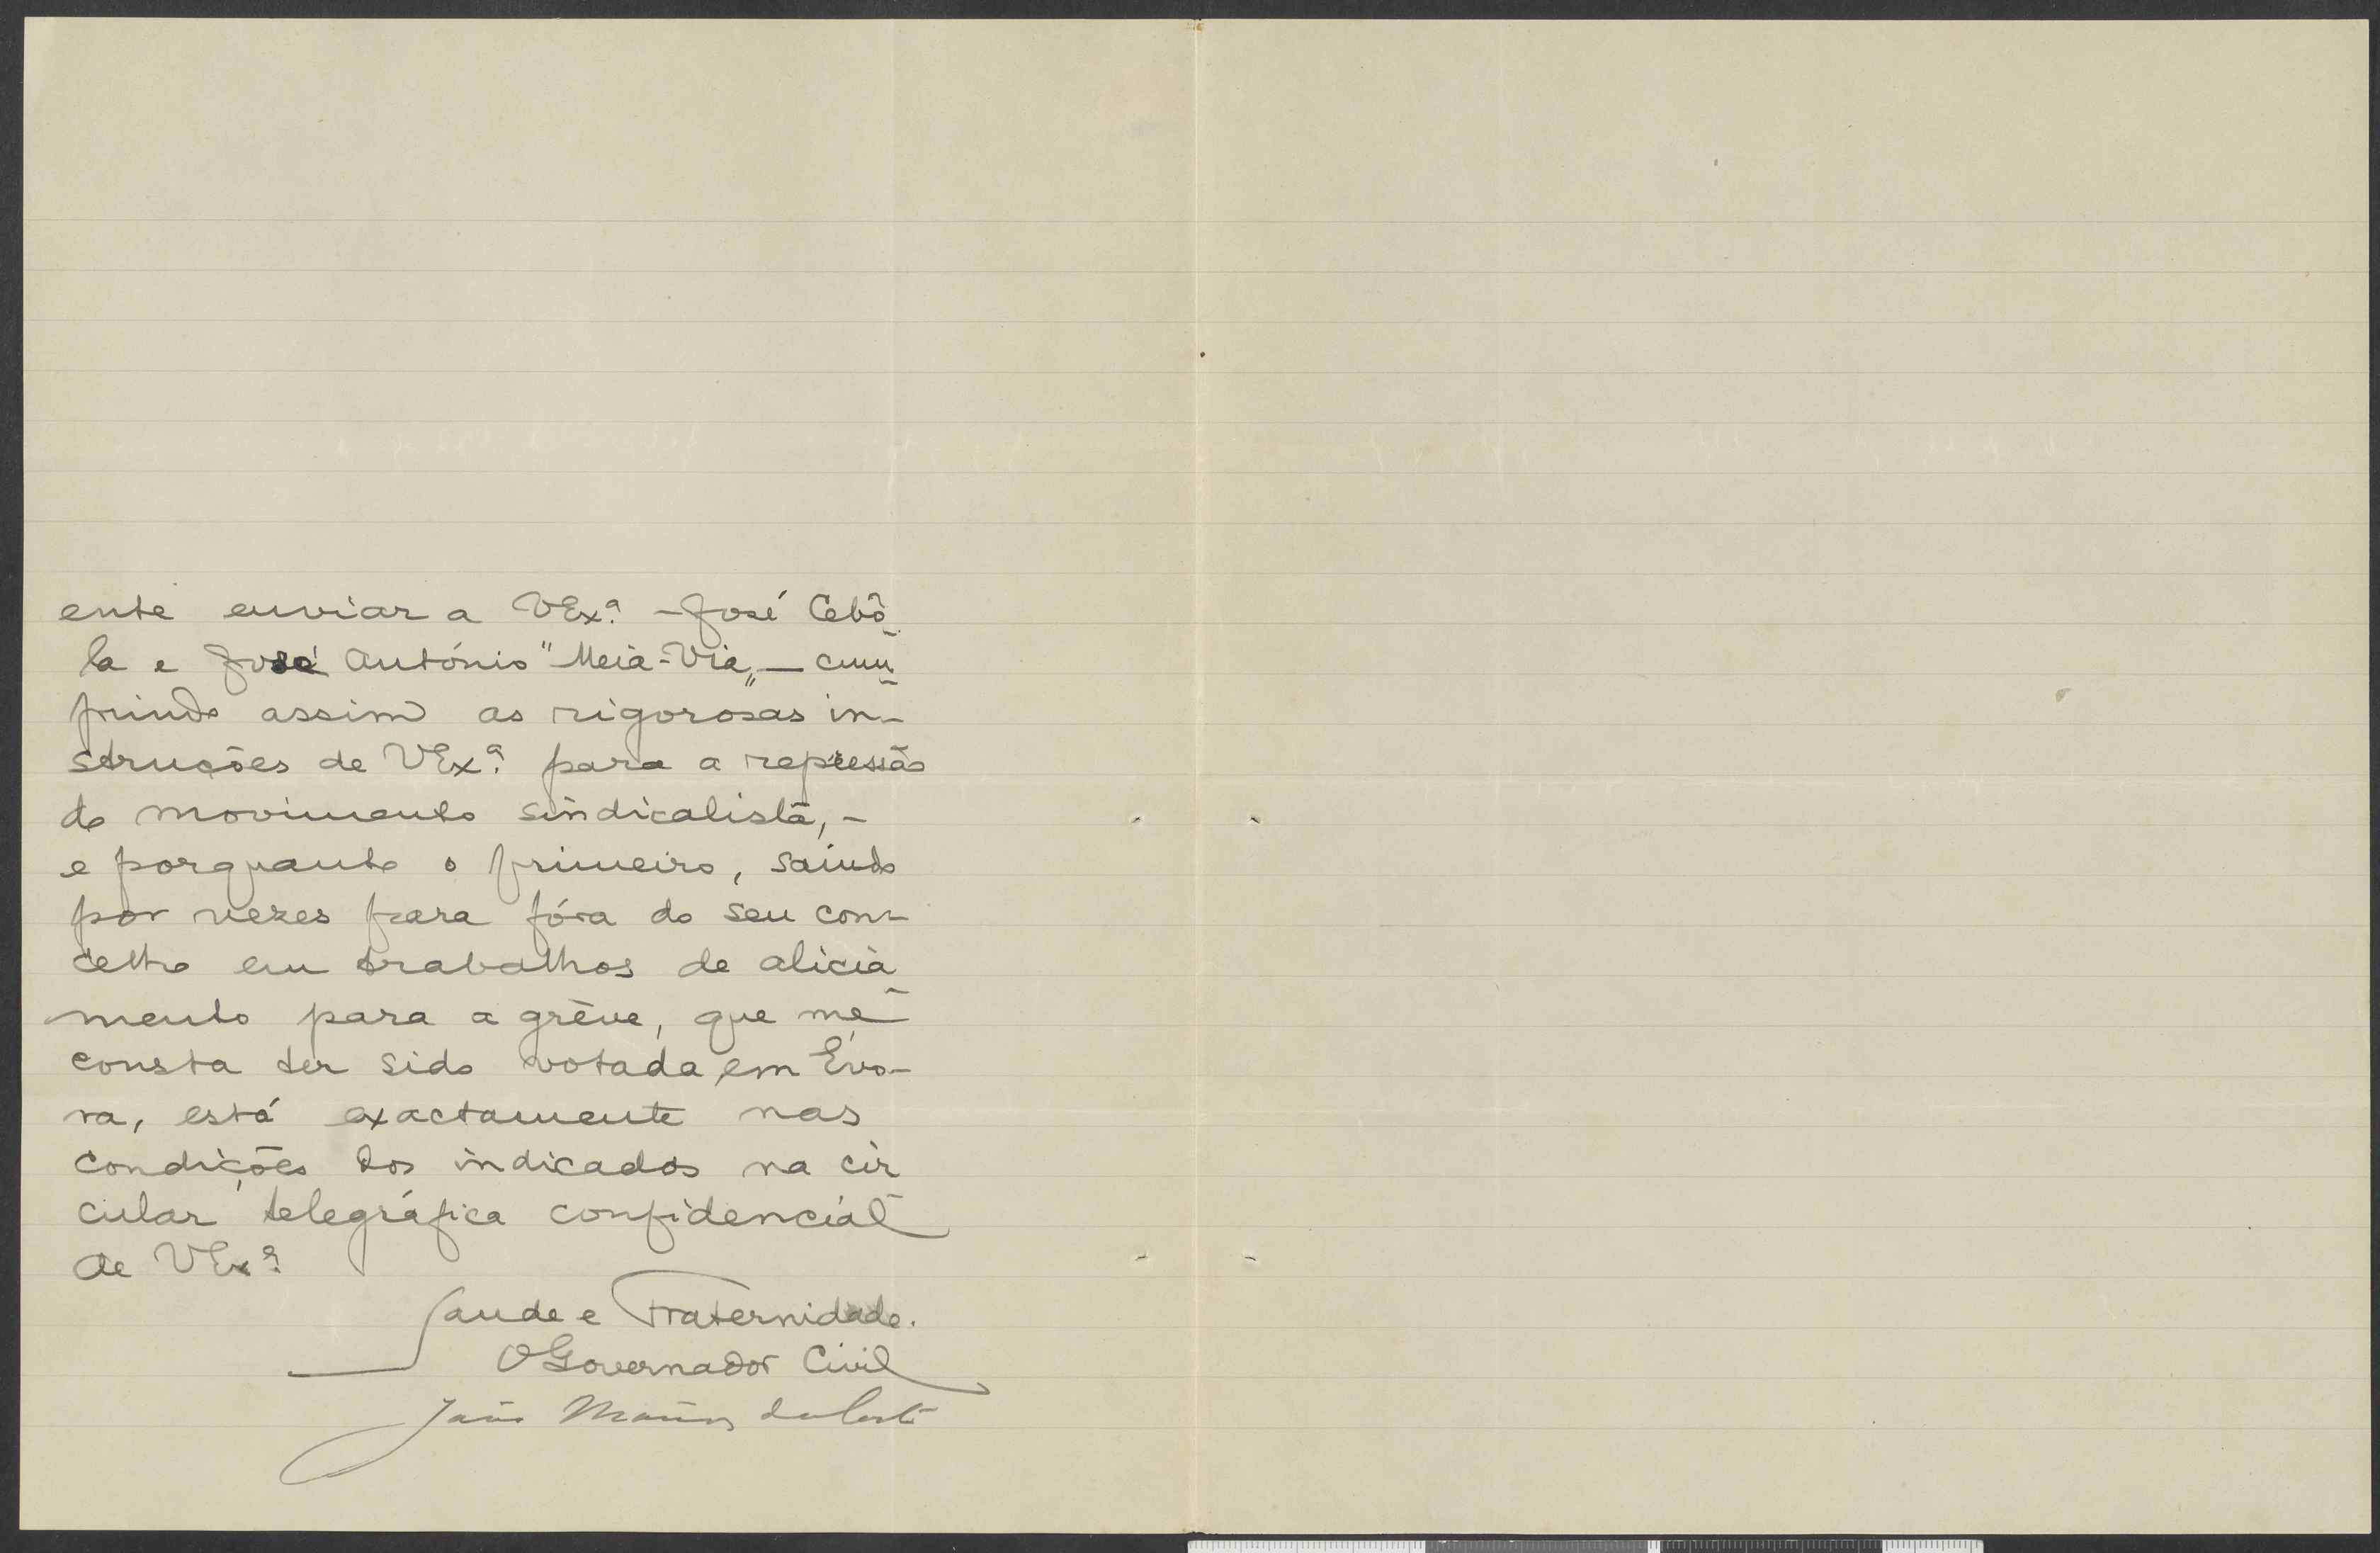 ente enviar a VExª. - José Cebô-
la e José António "Meia-Via„ — cum-
prindo assim as rigorosas in-
struções de VExª. para a repressão
do movimento sindicalista, -
e porquanto o primeiro, saindo
por vezes para fóra do seu con-
celho em trabalhos de alicia-
mento para a gréve, que me
consta ter sido votada em Evo-
ra, está exactamente nas
condições dos indicados na cir-
cular telegráfica confidencial
de VExª.
Saude e Fraternidade.
O Governador Civil
João da Costa